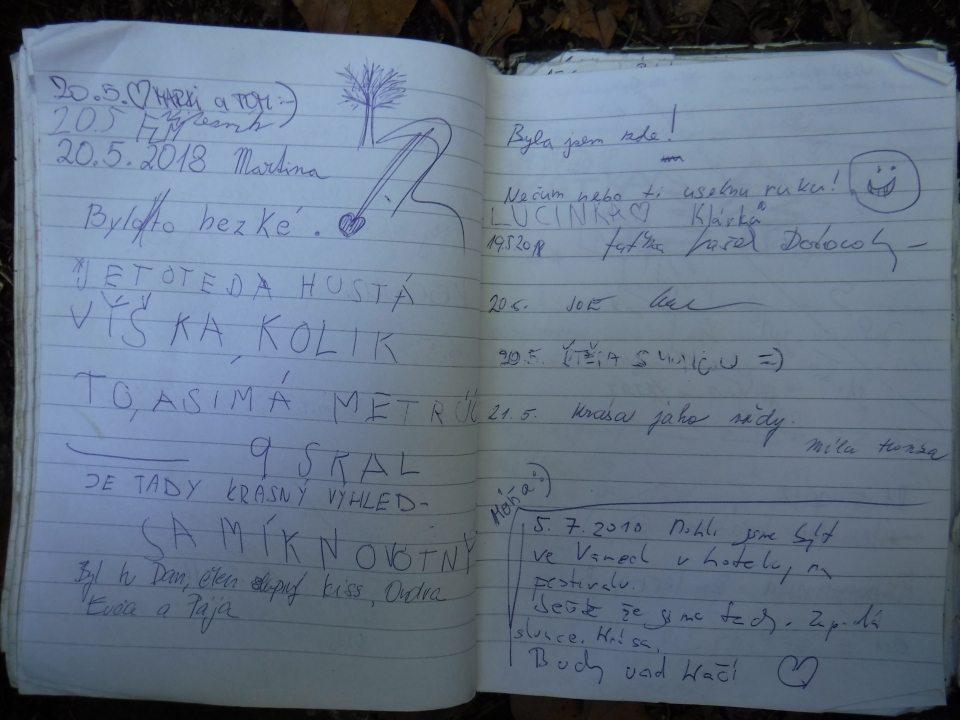 20.5. ♡ MAPXI a TOM :-)
20.5
20.5.2018 Martina
Bylo to hezké.
JE TO TEDA HUSTÁ
VÝŠKA, KOLIK
TO, ASI MÁ METRŮ
9 SKAL
JE TADY KRÁSNÝ VÝHLED-
SAMÍK NOVOTNÝ
Byl tu Dan, člen skupiny kiss, Ondra
Eviča a Pája
Byla jsem zde!
Nečum nebo ti useknu ruku!
LUCINKA ♡ Klárka
20.5. JOE
20.5.
21.5. Krása jako vždy.
Míla Honza
5.7.2010 Mohli jsme být
ve Varech v hotelu, na
festivalu.
že jsme tady. Zapadá
slunce. Krása.
Buďy vod Kačí ♡